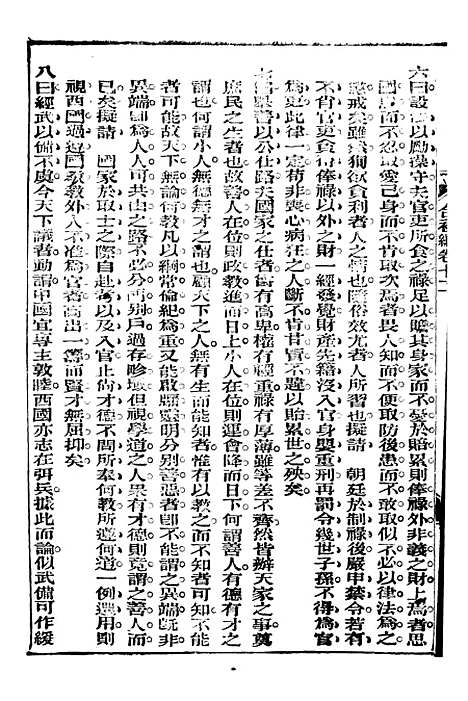 卷十二
六曰設法以勵操守夫官吏所食之祿足以贍其身家而不憂於貽累則俸祿外非義之財上焉者思
國恩而不忍取愛己身而不肯取次焉者畏人知而不便取防後患而不敢取似不必以律法爲之
懲戒矣雖然狥欲貪利者人之情也隨俗效尤者人所習也擬請 朝廷於制祿後嚴申禁令若有
不肖官吏貪得俸祿以外之財一經發覺財產先籍沒入官身嬰重刑再罰令幾世子孫不得爲官
爲吏此律一定苟非喪心病狂之人斷不肯甘冒不韙以貽累世之殃矣
七曰舉善以公仕路夫國家之仕有高卑權有輕重祿有厚薄雖等差不齊然皆辦天家之事奠
庶民之生者也故善人在位則政教進而日上小人在位則運會降而日下何謂善人有德有才之
謂也何謂小人無德無才之謂也顧天下之人無有生而能知者惟有以教之而不知者可知不能
者可能故天下無論何教凡以綱常倫紀爲重又能啟顯靈明分別善惡者卽不能謂之異端旣非
異端卽爲人人可共由之路不必分門別戶過存畛域但視學道之人果有才德則竟謂之善人而
已矣擬請 國家於取士之際自赴考以及入官止尚才德不問所奉何教所遵何道一例選用則
視西國過遵國教教外人不准爲官者高出一等而賢才無屈抑矣
八曰經武以備不虞今天下議者動謂中國宜專主敦睦西國亦志在弭兵據此而論似武備可作緩